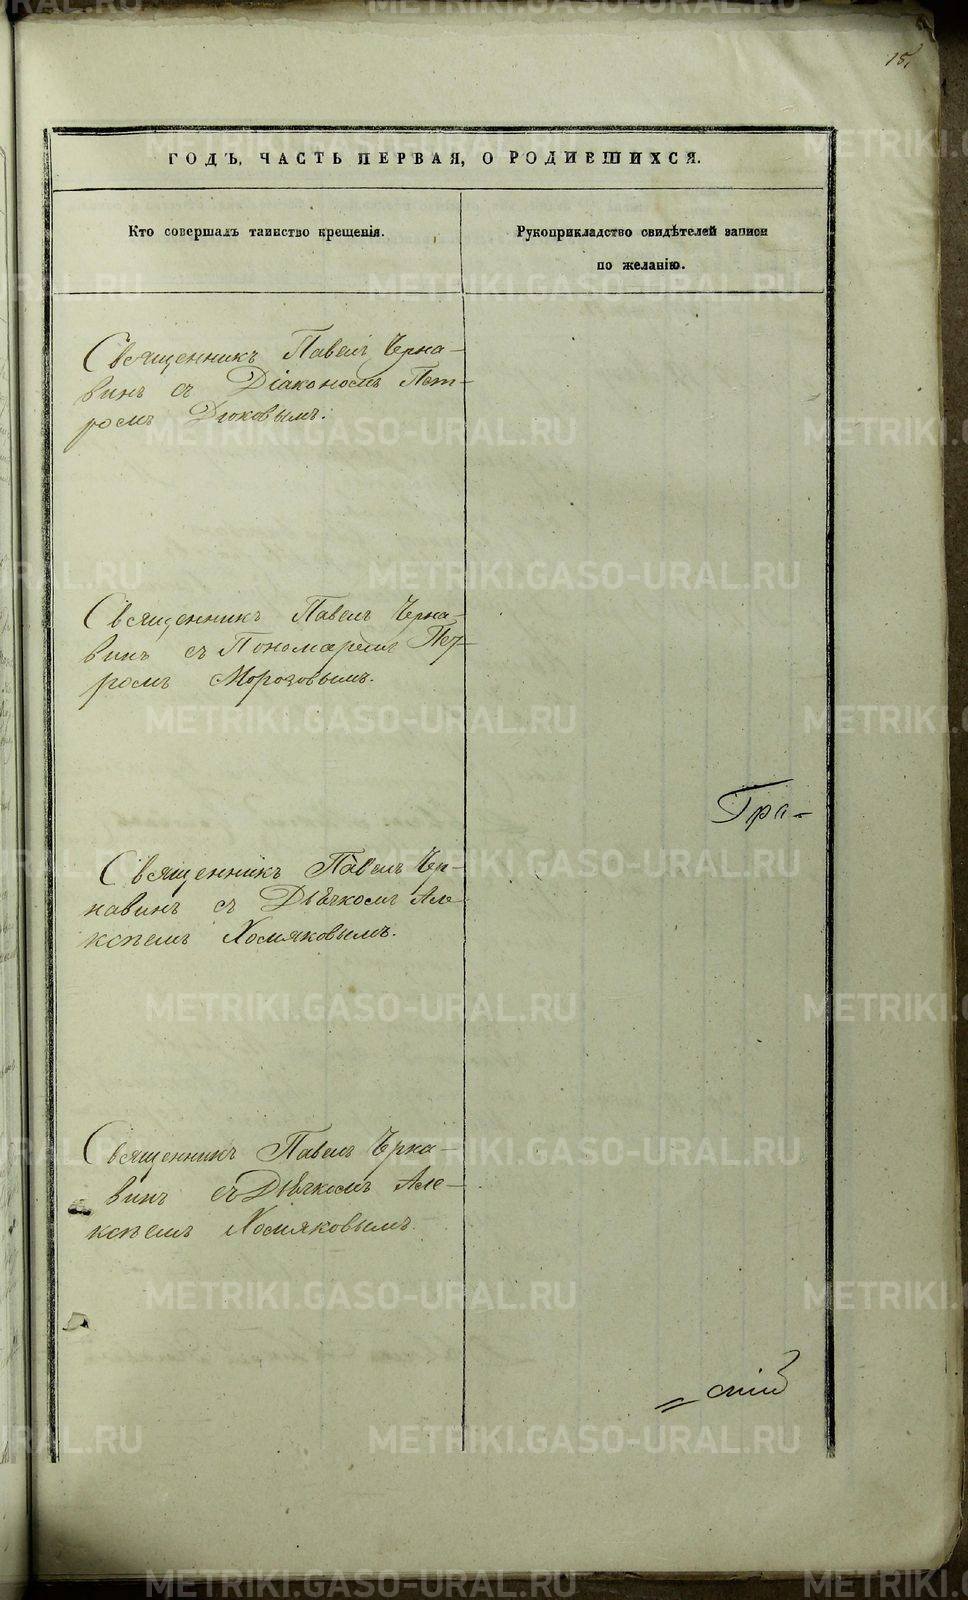 15.
ГОДЪ, ЧАСТЬ ПЕРВАЯ, О РОДИВШИХСЯ.
Кто совершалъ таинство крещенія.
Рукоприкладство свидѣтелей записи
по желанію.
Священникъ Павелъ Черна-
винъ съ Діакономъ Пет-
ромъ Дюковымъ.
Священникъ Павелъ Черна-
винъ съ Пономаремъ Пет-
ромъ Морозовымъ.
Гра-
Священникъ Павелъ Чер-
навинъ съ Дьячкомъ Але-
ксѣемъ Хомяковымъ.
Священникъ Павелъ Черна-
винъ съ Дьячкомъ Але-
ксѣемъ Хомяковымъ.
METRIKI.GASO-URAL.RU